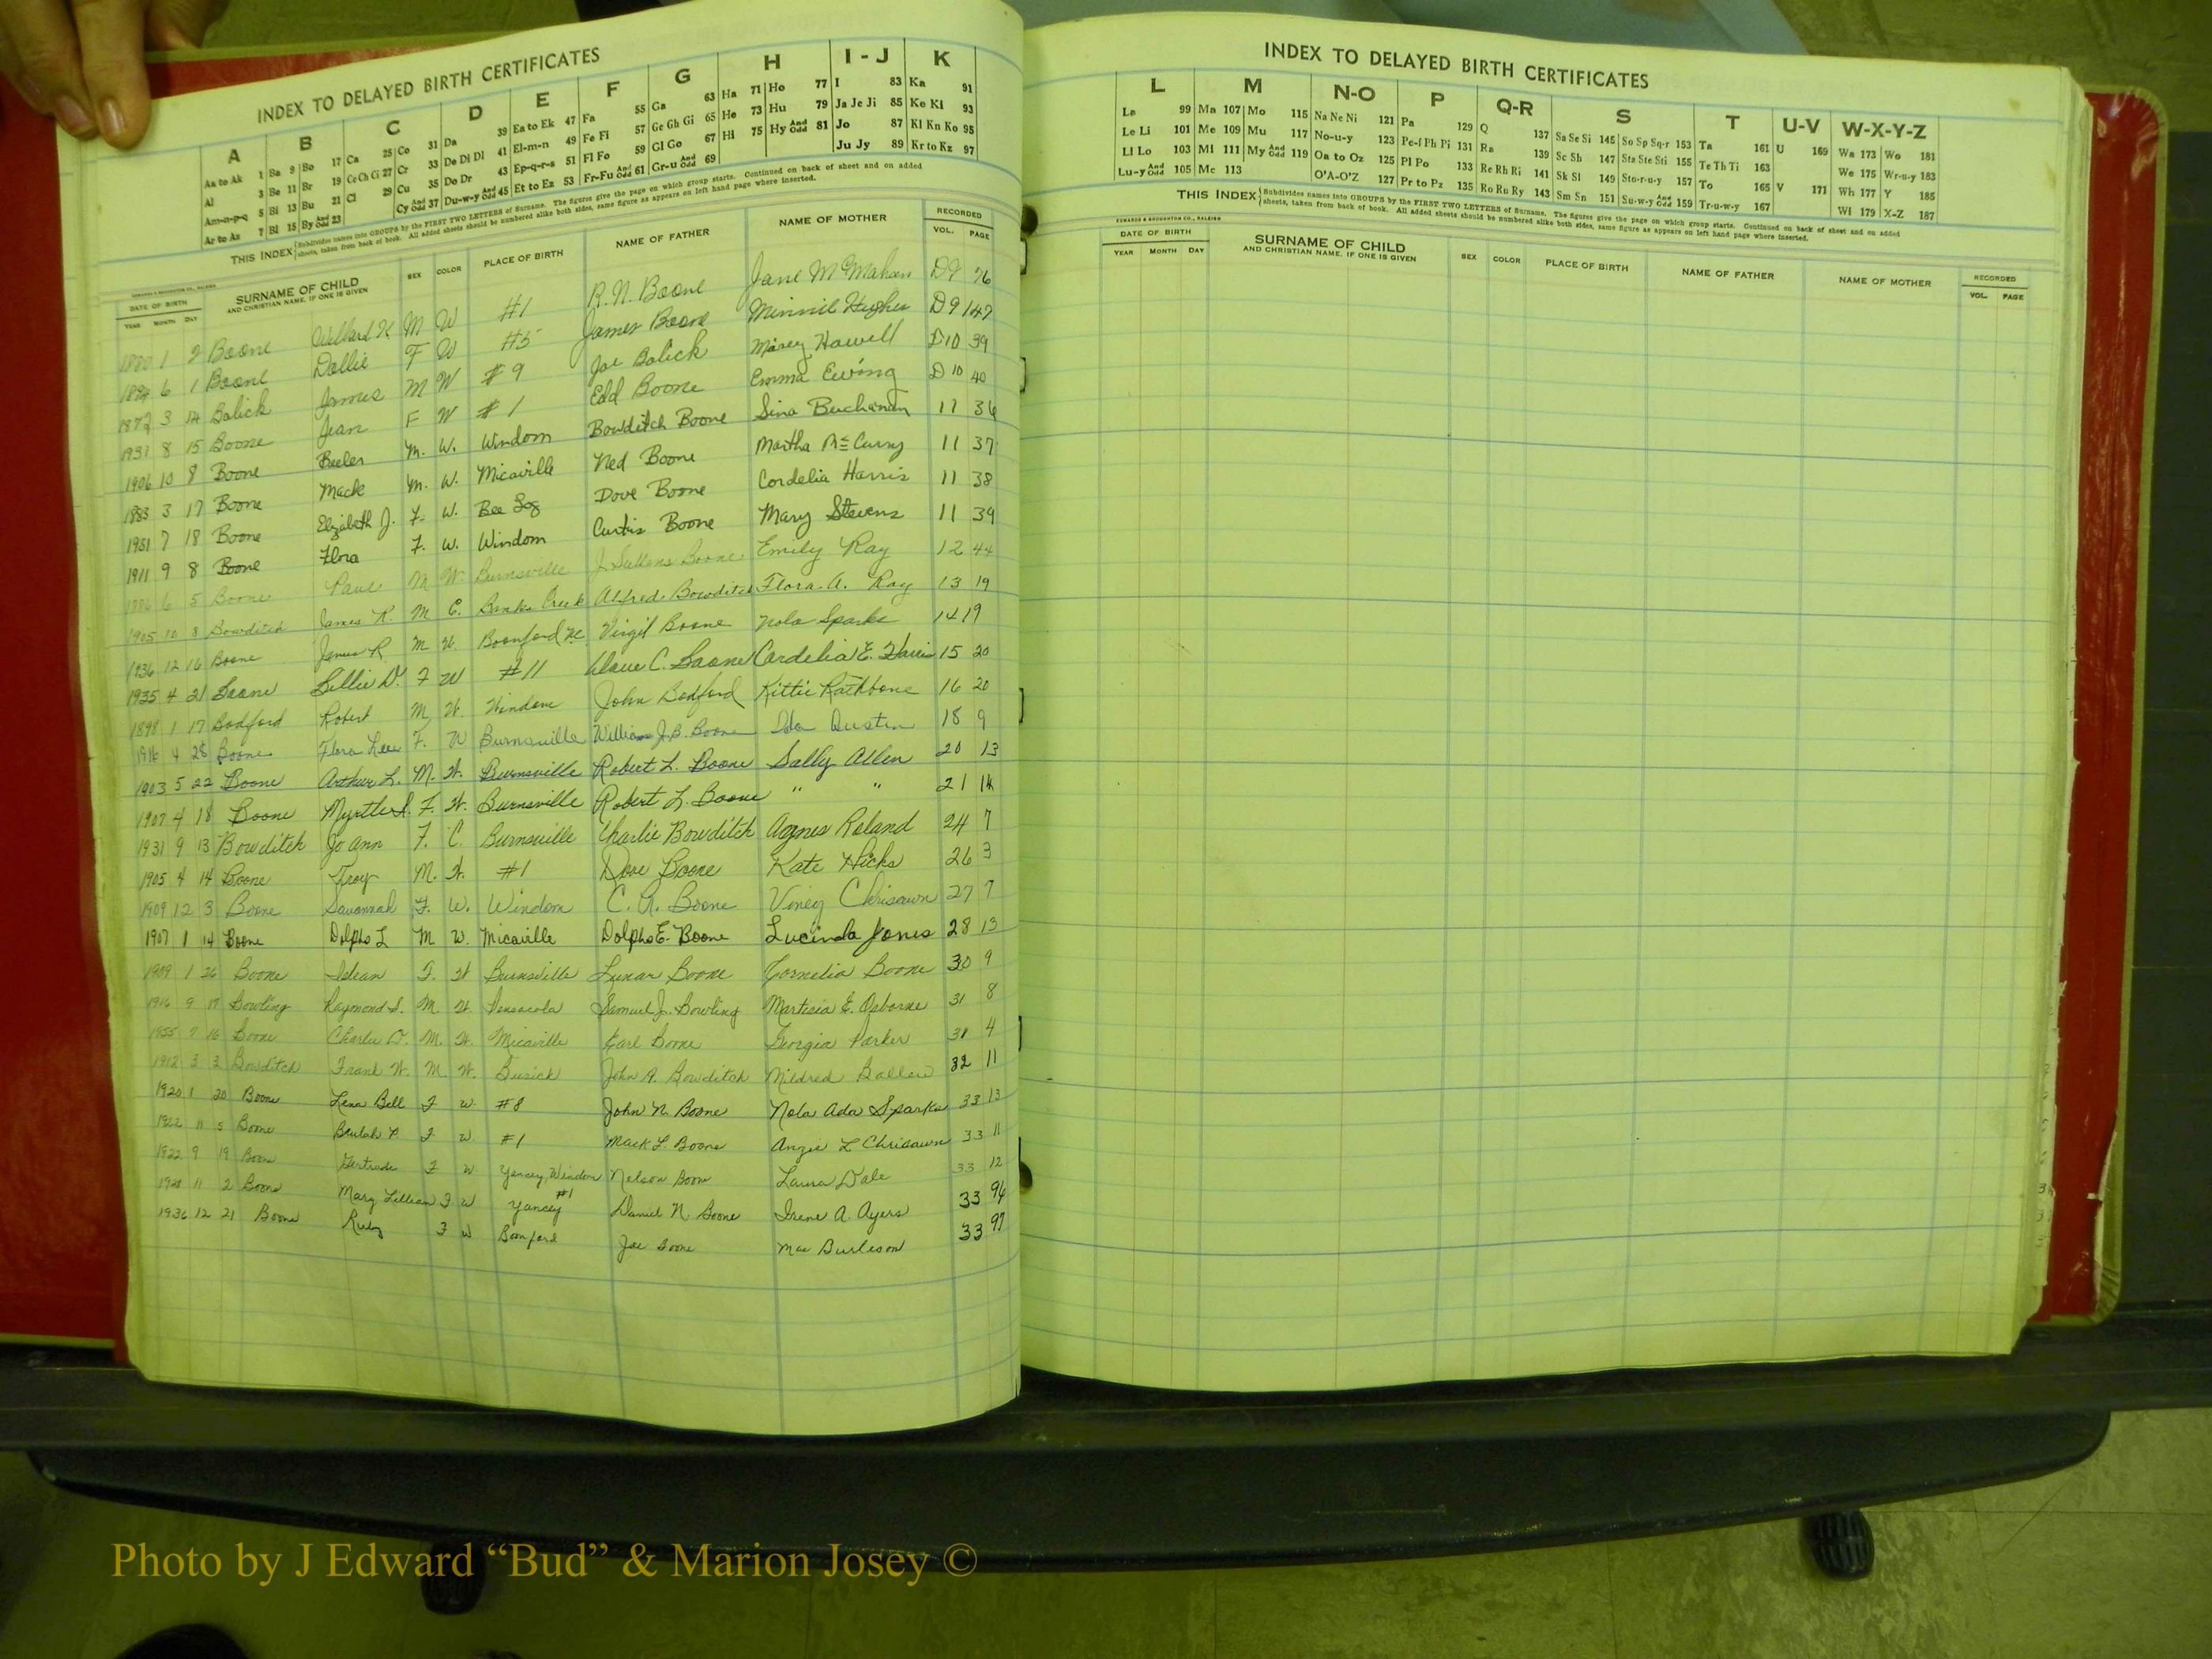 INDEX TO DELAYED BIRTH CERTIFICATES
A B C D E F G H I - J K
Aa to Ak 1 Ba 9 Bo 17 Ca 25 Co 31 Da 39 Ea to Ek 47 Fa 55 Ga 63 Ha 71 Ho 77 I 83 Ka 91
Al 3 Be 11 Br 19 Ce Ch Ci 27 Cr 33 De Di Dl 41 El-m-n 49 Fe Fi 57 Ge Gh Gi 65 He 73 Hu 79 Ja Je Ji 85 Ke Ki 93
Am-n-p-q 5 Bi 13 Bu 21 Cl 29 Cu 35 Do Dr 43 Ep-q-r-s 51 Fl Fo 59 Gl Go 67 Hi 75 Hy And Odd 81 Jo 87 Kl Kn Ko 95
Ar to Az 7 Bl 15 By And Odd 23 Cy And Odd 37 Du-w-y And Odd 45 Et to Ez 53 Fr-Fu And Odd 61 Gr-u And Odd 69 Ju Jy 89 Kr to Kz 97
THIS INDEX Subdivides names into GROUPS by the FIRST TWO LETTERS of Surname. The figures give the page on which group starts. Continued on back of sheet and on added
sheets, taken from back of book. All added sheets should be numbered alike both sides, same figure as appears on left hand page where inserted.
DATE OF BIRTH SURNAME OF CHILD SEX COLOR PLACE OF BIRTH NAME OF FATHER NAME OF MOTHER RECORDED
YEAR MONTH DAY AND CHRISTIAN NAME, IF ONE IS GIVEN VOL. PAGE
1 2 Boone M W #1 R. N. Boone Jane McMahan D9 76
6 1 Boone Dollie F W #5 James Boone Minnie Hughes D9 147
3 14 Bolick James M W #9 Joe Bolick Howell D10 39
1931 8 15 Boone Jean F W #1 Edd Boone Emma Ewing D10 40
1906 10 8 Boone Beeler M. W. Windom Bowditch Boone Sina Buchanan 11 36
1883 3 17 Boone Mack M. W. Micaville Ned Boone Martha McCurry 11 37
1931 7 18 Boone Elizabeth J. F. W. Bee Log Dove Boone Cordelia Harris 11 38
1911 9 8 Boone Flora F. W. Windom Curtis Boone Mary Stevens 11 39
6 5 Boone Paul M W Burnsville Boone Emily Ray 12 44
1905 10 8 Bowditch James K. M C. Banks Creek Alfred Bowditch Flora A. Ray 13 19
1936 12 16 Boone James R M W. Boonford NC Virgil Boone Nola Sparks 14 19
1935 4 21 Boone Lillie D. F W #11 Dave C. Boone Cordelia E. Harris 15 20
1898 1 17 Bodford Robert M W. Windom John Bodford Kittie Rathbone 16 20
1916 4 28 Boone Flora Lee F. W Burnsville William J.B. Boone Ida Austin 18 9
1903 5 22 Boone Arthur L. M. W. Burnsville Robert L. Boone Sally Allen 20 13
1907 4 18 Boone Myrtle F. W. Burnsville Robert L. Boone " " 21 14
1931 9 13 Bowditch Jo Ann F. C. Burnsville Charlie Bowditch Agnes Roland 24 7
1905 4 14 Boone Troy M. W. #1 Dove Boone Kate Hicks 26 3
1909 12 3 Boone Savannah F. W. Windom C. R. Boone Viney Chrisawn 27 7
1907 1 14 Boone Dolpho L M W. Micaville Dolpho E. Boone Lucinda Jones 28 13
1909 1 26 Boone Idean F. W Burnsville Lunar Boone Cornelia Boone 30 9
1916 9 Bowling Raymond S. M W. Pensacola Samuel J. Bowling E. Osborne 31 8
16 Boone Charlie D. M. W. Micaville Earl Boone Georgia Parker 31 4
1912 3 3 Bowditch Frank W. M W. Busick John A. Bowditch Mildred Ballew 32 11
1920 1 20 Boone Lena Bell F W #8 John N. Boone Nola Ada Sparks 33 13
1922 11 5 Boone Beulah F W #1 Mack L. Boone Angie L Chrisawn 33 11
1922 9 19 Boone Gertrude F W Yancey, Windom Nelson Boone Laura Dale 33 12
11 2 Boone Mary Lillian F W Yancey #1 Daniel N Boone Irene A. Ayers 33 96
1936 12 21 Boone Ruby F W Boonford Joe Boone Mae Burleson 33 97
INDEX TO DELAYED BIRTH CERTIFICATES
L M N-O P Q-R S T U-V W-X-Y-Z
La 99 Ma 107 Mo 115 Na Ne Ni 121 Pa 129 Q 137 Sa Se Si 145 So Sp Sq-r 153 Ta 161 U 169 Wa 173 Wo 181
Le Li 101 Me 109 Mu 117 No-u-y 123 Pe-f Ph Pi 131 Ra 139 Sc Sh 147 Sta Ste Sti 155 Te Th Ti 163 We 175 Wr-u-y 183
Ll Lo 103 Mi 111 My And Odd 119 Oa to Oz 125 Pl Po 133 Re Rh Ri 141 Sk Sl 149 Sto-r-u-y 157 To 165 V 171 Wh 177 Y 185
Lu-y And Odd 105 Mc 113 O'A-O'Z 127 Pr to Pz 135 Ro Ru Ry 143 Sm Sn 151 Su-w-y And Odd 159 Tr-u-w-y 167 Wi 179 X-Z 187
THIS INDEX Subdivides names into GROUPS by the FIRST TWO LETTERS of Surname. The figures give the page on which group starts. Continued on back of sheet and on added
sheets, taken from back of book. All added sheets should be numbered alike both sides, same figure as appears on left hand page where inserted.
EDWARDS & BROUGHTON CO., RALEIGH
DATE OF BIRTH SURNAME OF CHILD SEX COLOR PLACE OF BIRTH NAME OF FATHER NAME OF MOTHER RECORDED
YEAR MONTH DAY AND CHRISTIAN NAME, IF ONE IS GIVEN VOL. PAGE
Photo by J Edward “Bud” & Marion Josey ©